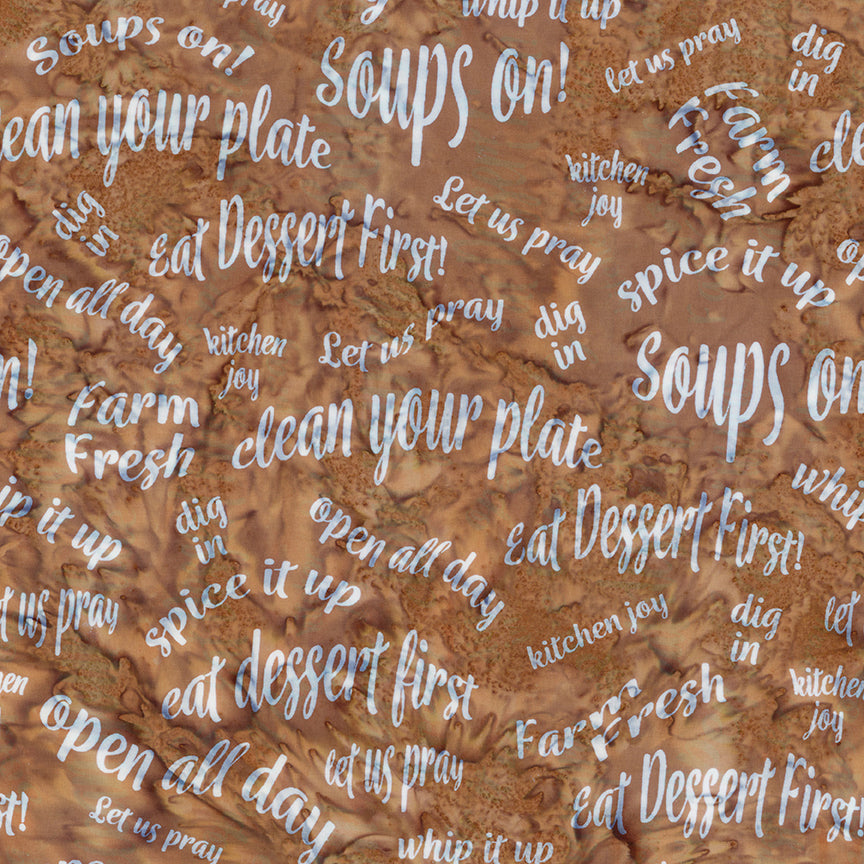 pray
whip it up
Soups on!
Soups on!
let us pray
dig
in
clean your plate
Farm
Fresh
kitchen
joy
dig
in
Let us pray
Eat Dessert First!
spice it up
open all day
kitchen
joy
Let us pray
dig
in
Soups on
Farm
Fresh
clean your plate
whip
whip it up
dig
in
open all day
Eat Dessert First!
spice it up
let us pray
kitchen joy
dig
in
let
eat dessert first
Farm Fresh
kitchen
joy
open all day
let us pray
Eat Dessert First!
Let us pray
whip it up